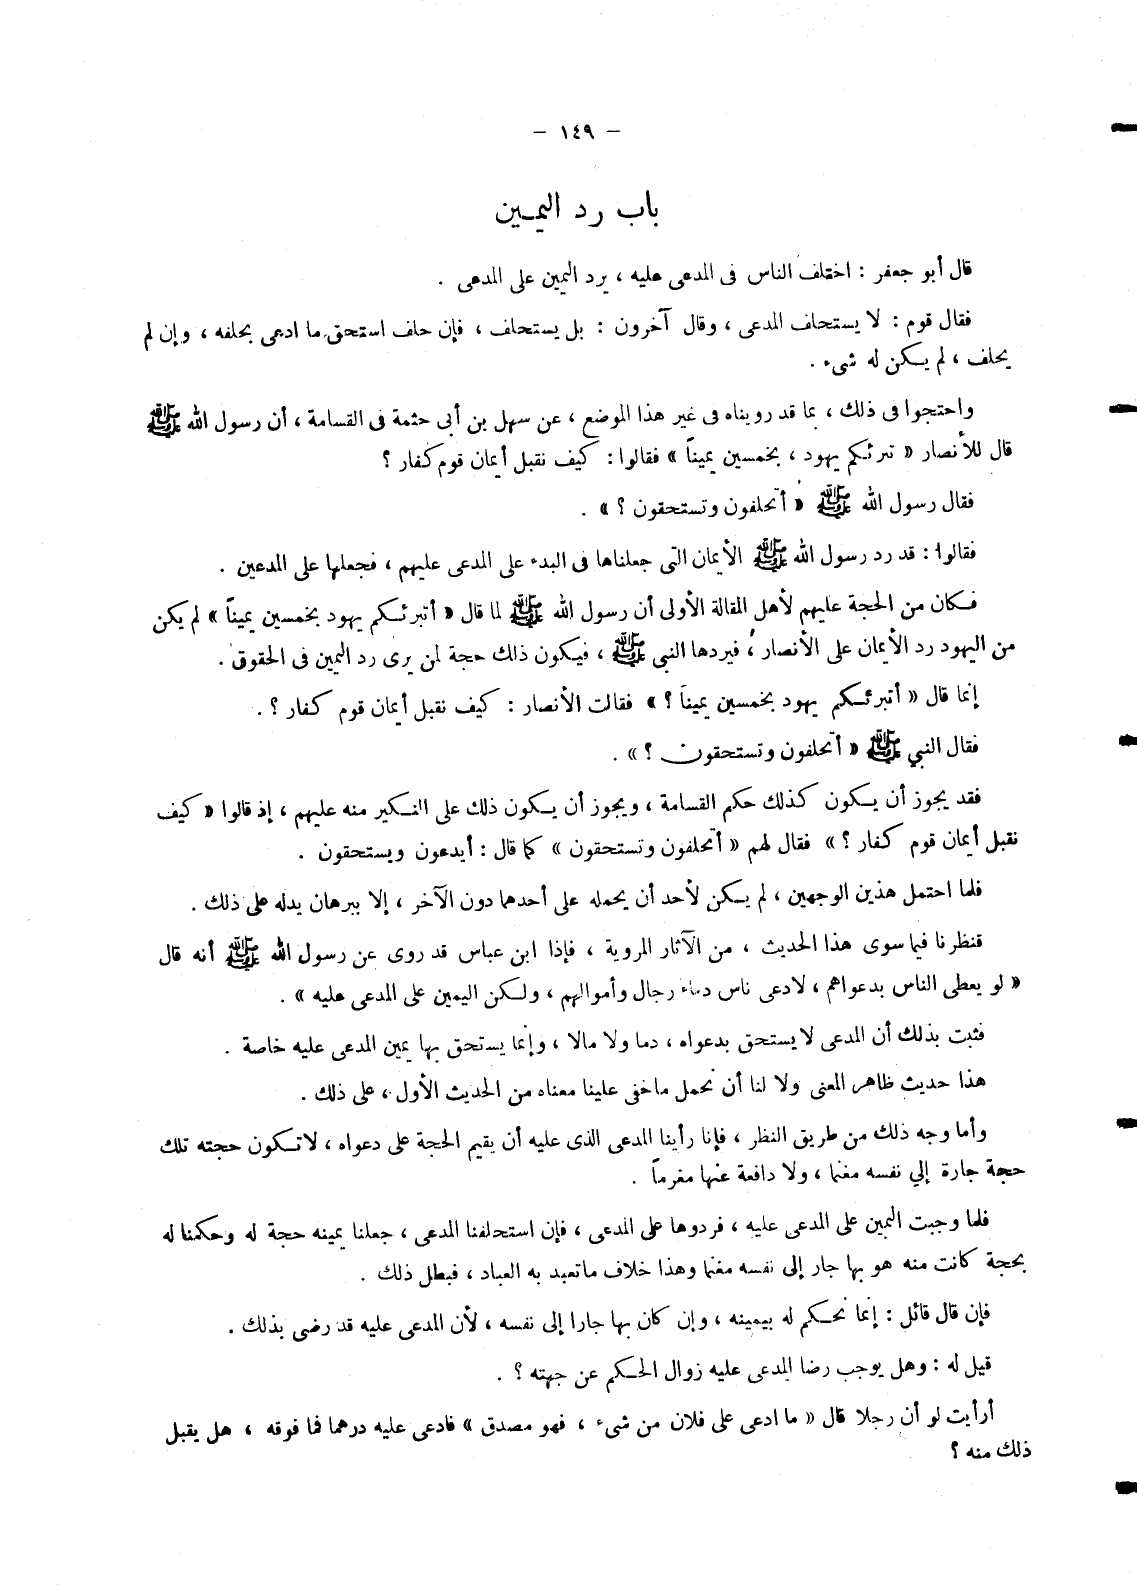 – ١٤٩ –
باب رد اليمـين
قال أبو جعفر : اختلف الناس فى المدعى عليه ، يرد اليمين على المدعى .
فقال قوم : لا يستحلف المدعى ، وقال آخرون : بل يستحلف ، فإن حلف استحق ما ادعى بحلفه ، وإن لم
يحلف ، لم يـكن له شىء .
واحتجوا فى ذلك ، بما قد رويناه فى غير هذا الموضع ، عن سهل بن أبى حثمة فى القسامة ، أن رسول الله ﷺ
قال للأنصار « تبرئـكم يهود ، بخمسين يميناً » فقالوا : كيف نقبل أيمان قوم كفار ؟
فقال رسول الله ﷺ « أتحلفون وتستحقون ؟ » .
فقالوا : قد رد رسول الله ﷺ الأيمان التى جعلناها فى البدء على المدعى عليهم ، فجعلها على المدعين .
فـكان من الحجة عليهم لأهل المقالة الأولى أن رسول الله ﷺ لما قال « أتبرئـكم يهود بخمسين يميناً » لم يكن
من اليهود رد الأيمان على الأنصار ، فيردها النبى ﷺ ، فيـكون ذلك حجة لمن يرى رد اليمين فى الحقوق .
إنما قال « أتبرئـكم يهود بخمسين يميناً ؟ » فقالت الأنصار : كيف نقبل أيمان قوم كـفار ؟ .
فقال النبي ﷺ « أتحلفون وتستحقون ؟ » .
فقد يجوز أن يـكون كذلك حكم القسامة ، ويجوز أن يـكون ذلك على النـكير منه عليهم ، إذ قالوا « كيف
نقبل أيمان قوم كـفار ؟ » فقال لهم « أتحلفون وتستحقون » كما قال : أيدعون ويستحقون .
فلما احتمل هذين الوجهين ، لم يـكن لأحد أن يحمله على أحدهما دون الآخر ، إلا ببرهان يدله على ذلك .
فنظرنا فيما سوى هذا الحديث ، من الآثار المروية ، فإذا ابن عباس قد روى عن رسول الله ﷺ أنه قال
« لو يعطى الناس بدعواهم ، لادعى ناس دماء رجال وأموالهم ، ولـكن اليمين على المدعى عليه » .
فثبت بذلك أن المدعى لا يستحق بدعواه ، دما ولا مالا ، وإنما يستحق بها يمين المدعى عليه خاصة .
هذا حديث ظاهر المعنى ولا لنا أن نحمل ماخفى علينا معناه من الحديث الأول ، على ذلك .
وأما وجه ذلك من طريق النظر ، فإنا رأينا المدعى الذى عليه أن يقيم الحجة على دعواه ، لاتـكون حجته تلك
حجة جارة إلي نفسه مغنما ، ولا دافعة عنها مغرماً .
فلما وجبت اليمين على المدعى عليه ، فردوها على المدعى ، فإن استحلفنا المدعى ، جعلنا يمينه حجة له وحكمنا له
بحجة كانت منه هو بها جار إلى نفسه مغنما وهذا خلاف ماتعبد به العباد ، فبطل ذلك .
فإن قال قائل : إنما نحـكم له بيمينه ، وإن كان بها جارا إلى نفسه ، لأن المدعى عليه قد رضى بذلك .
قيل له : وهل يوجب رضا المدعى عليه زوال الحـكم عن جهته ؟ .
أرأيت لو أن رجلا قال « ما ادعى على فلان من شىء ، فهو مصدق » فادعى عليه درهما فما فوقه ، هل يقبل
ذلك منه ؟